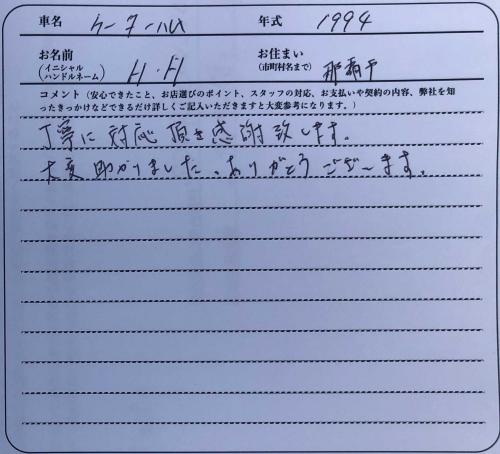 車名 ケーターハム 年式 1994
お名前 (イニシャル ハンドルネーム) H.H お住まい (市町村名まで) 那覇市
コメント (安心できたこと、お店選びのポイント、スタッフの対応、お支払いや契約の内容、弊社を知
ったきっかけなどできるだけ詳しくご記入いただきますと大変参考になります。)
丁寧に対応頂き感謝致します。
大変助かりました、ありがとうございます。